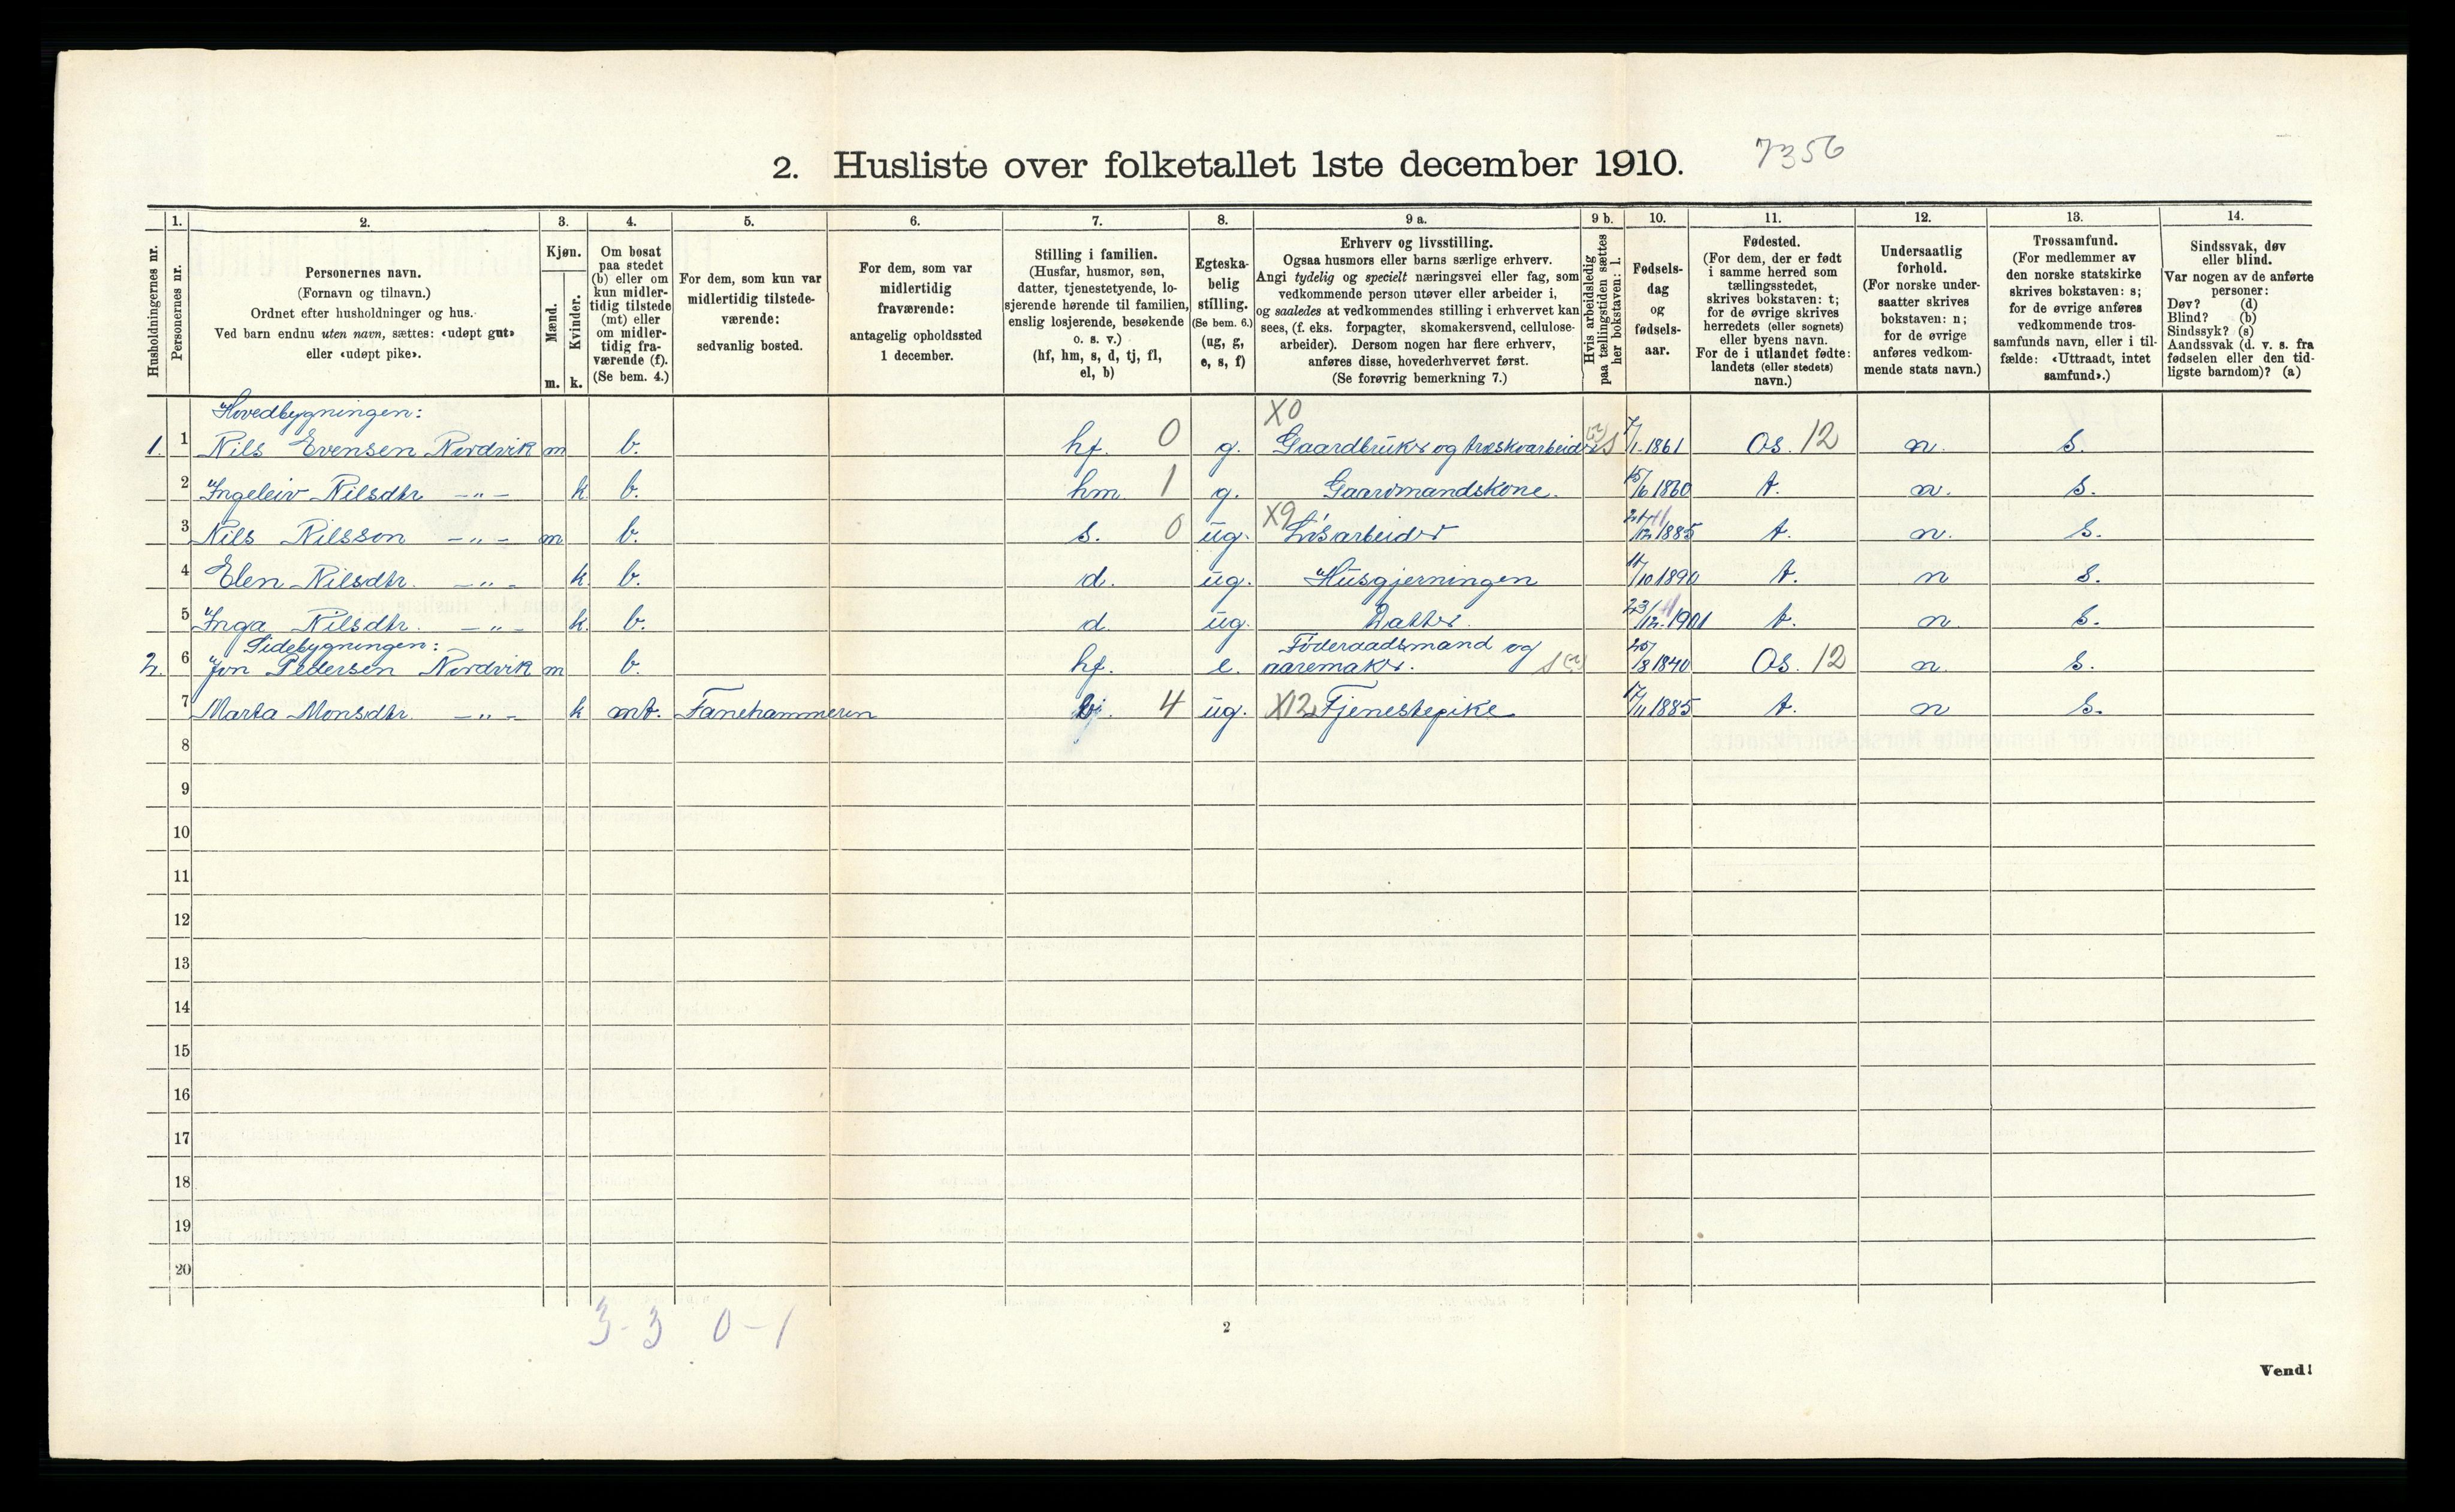 2. Husliste over folketallet 1ste december 1910. 7356
Husholdningernes nr.
1.
Personernes nr.
2.
Personernes navn.
(Fornavn og tilnavn.)
Ordnet efter husholdninger og hus.
Ved barn endnu uten navn, sættes: «udøpt gut»
eller «udøpt pike».
3.
Kjøn.
Mænd.
Kvinder.
m. k.
4.
Om bosat
paa stedet
(b) eller om
kun midler-
tidig tilstede
(mt) eller
om midler-
tidig fra-
værende (f).
(Se bem. 4.)
5.
For dem, som kun var
midlertidig tilstede-
værende:
sedvanlig bosted.
6.
For dem, som var
midlertidig
fraværende:
antagelig opholdssted
1 december.
7.
Stilling i familien.
(Husfar, husmor, søn,
datter, tjenestetyende, lo-
sjerende hørende til familien,
enslig losjerende, besøkende
o. s. v.)
(hf, hm, s, d, tj, fl,
el, b)
8.
Egteska-
belig
stilling.
(Se bem. 6.)
(ug, g,
e, s, f)
9 a.
Erhverv og livsstilling.
Ogsaa husmors eller barns særlige erhverv.
Angi tydelig og specielt næringsvei eller fag, som
vedkommende person utøver eller arbeider i,
og saaledes at vedkommendes stilling i erhvervet kan
sees, (f. eks. forpagter, skomakersvend, cellulose-
arbeider). Dersom nogen har flere erhverv,
anføres disse, hovederhvervet først.
(Se forøvrig bemerkning 7.)
9 b.
Hvis arbeidsledig
paa tællingstiden sættes
her bokstaven: l.
10.
Fødsels-
dag
og
fødsels-
aar.
11.
Fødested.
(For dem, der er født
i samme herred som
tællingsstedet,
skrives bokstaven: t;
for de øvrige skrives
herredets (eller sognets)
eller byens navn.
For de i utlandet fødte:
landets (eller stedets)
navn.)
12.
Undersaatlig
forhold.
(For norske under-
saatter skrives
bokstaven: n;
for de øvrige
anføres vedkom-
mende stats navn.)
13.
Trossamfund.
(For medlemmer av
den norske statskirke
skrives bokstaven: s;
for de øvrige anføres
vedkommende tros-
samfunds navn, eller i til-
fælde: «Uttraadt, intet
samfund».)
14.
Sindssvak, døv
eller blind.
Var nogen av de anførte
personer:
Døv? (d)
Blind? (b)
Sindssyk? (s)
Aandssvak (d. v. s. fra
fødselen eller den tid-
ligste barndom)? (a)
Hovedbygningen: X0
1. 1 Nils Evensen Nordvik m b. hf. 0 g. Gaardbruker og træskoarbeider 7/1 1861 Os. 12 n. S.
2 Ingeleiv Nilsdtr —"— k b. hm 1 g. Gaardmandskone. 15/6 1860 t. n. S.
3 Nils Nilsson —"— m b. s. 0 ug. X9 Løsarbeider 1885 t. n. S.
4 Elen Nilsdtr. —"— k. b. d. ug. Husgjerningen /10 1890 t. n S.
5 Inga Nilsdtr. —"— k. b. d. ug. Datter. 23/12 1901 t. n. S.
Sidebygningen: Føderaadsmand og
2. 6 Jon Pedersen Nordvik m b. hf. e. aaremaker. /8 1840 Os. 12 n. S.
7 Marta Monsdtr. —"— k mt. Fanehammeren 4 ug. X12 Tjenestepike 17/11 1885 t. n S.
8
9
10
11
12
13
14
15
16
17
18
19
20
3-3 0-1
2
Vend!